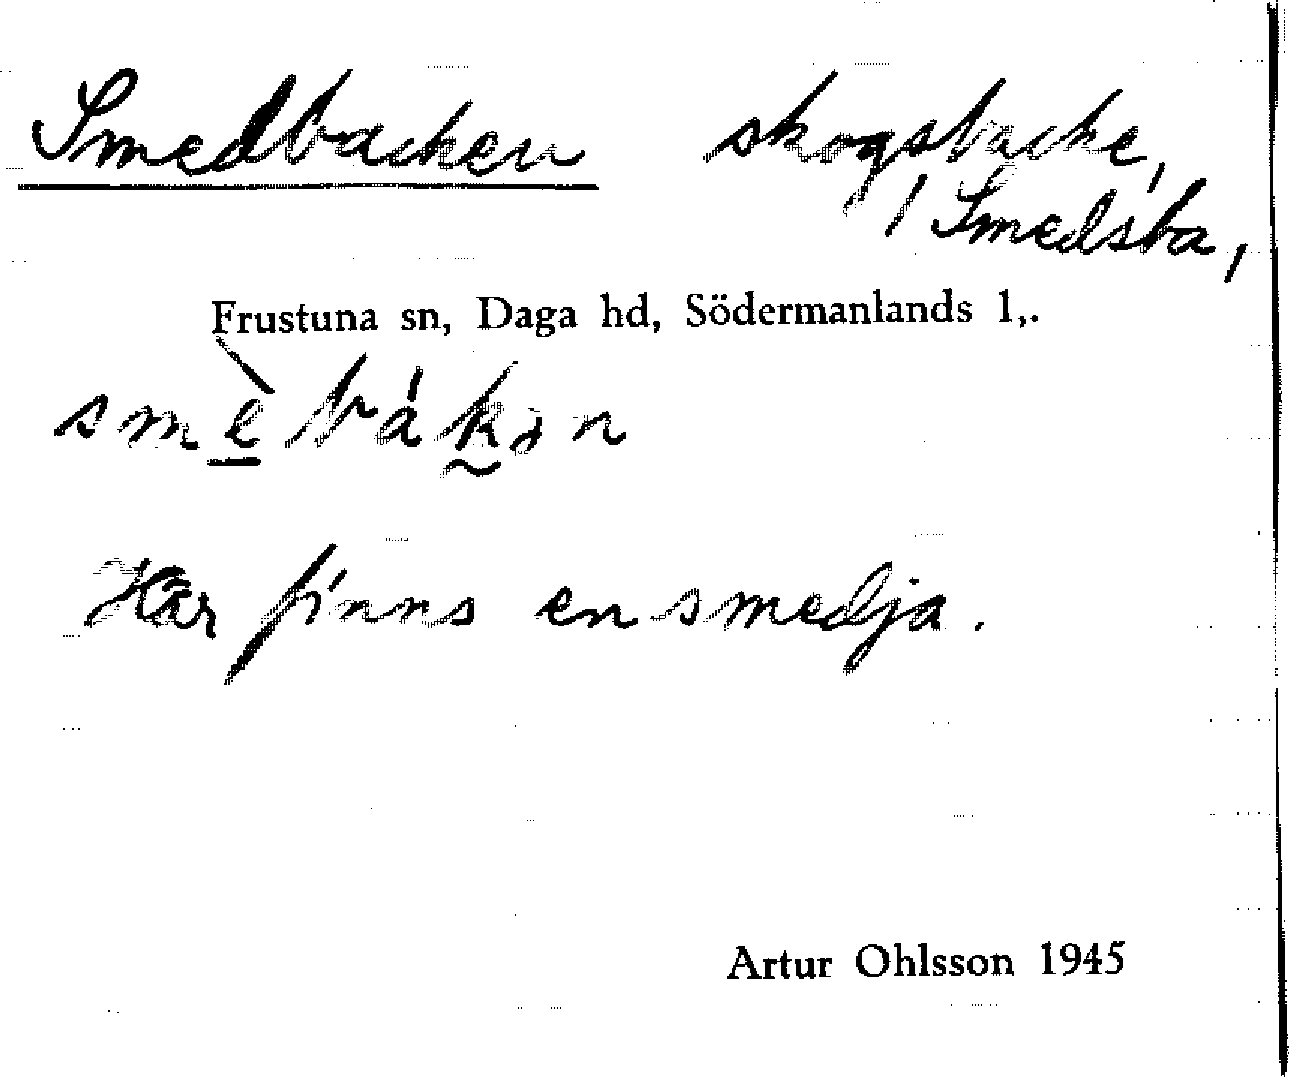 Smedbacken skogsbacke,
/ Smedsta,
Frustuna sn, Daga hd, Södermanlands l,.
Här finns en smedja.
Artur Ohlsson 1945